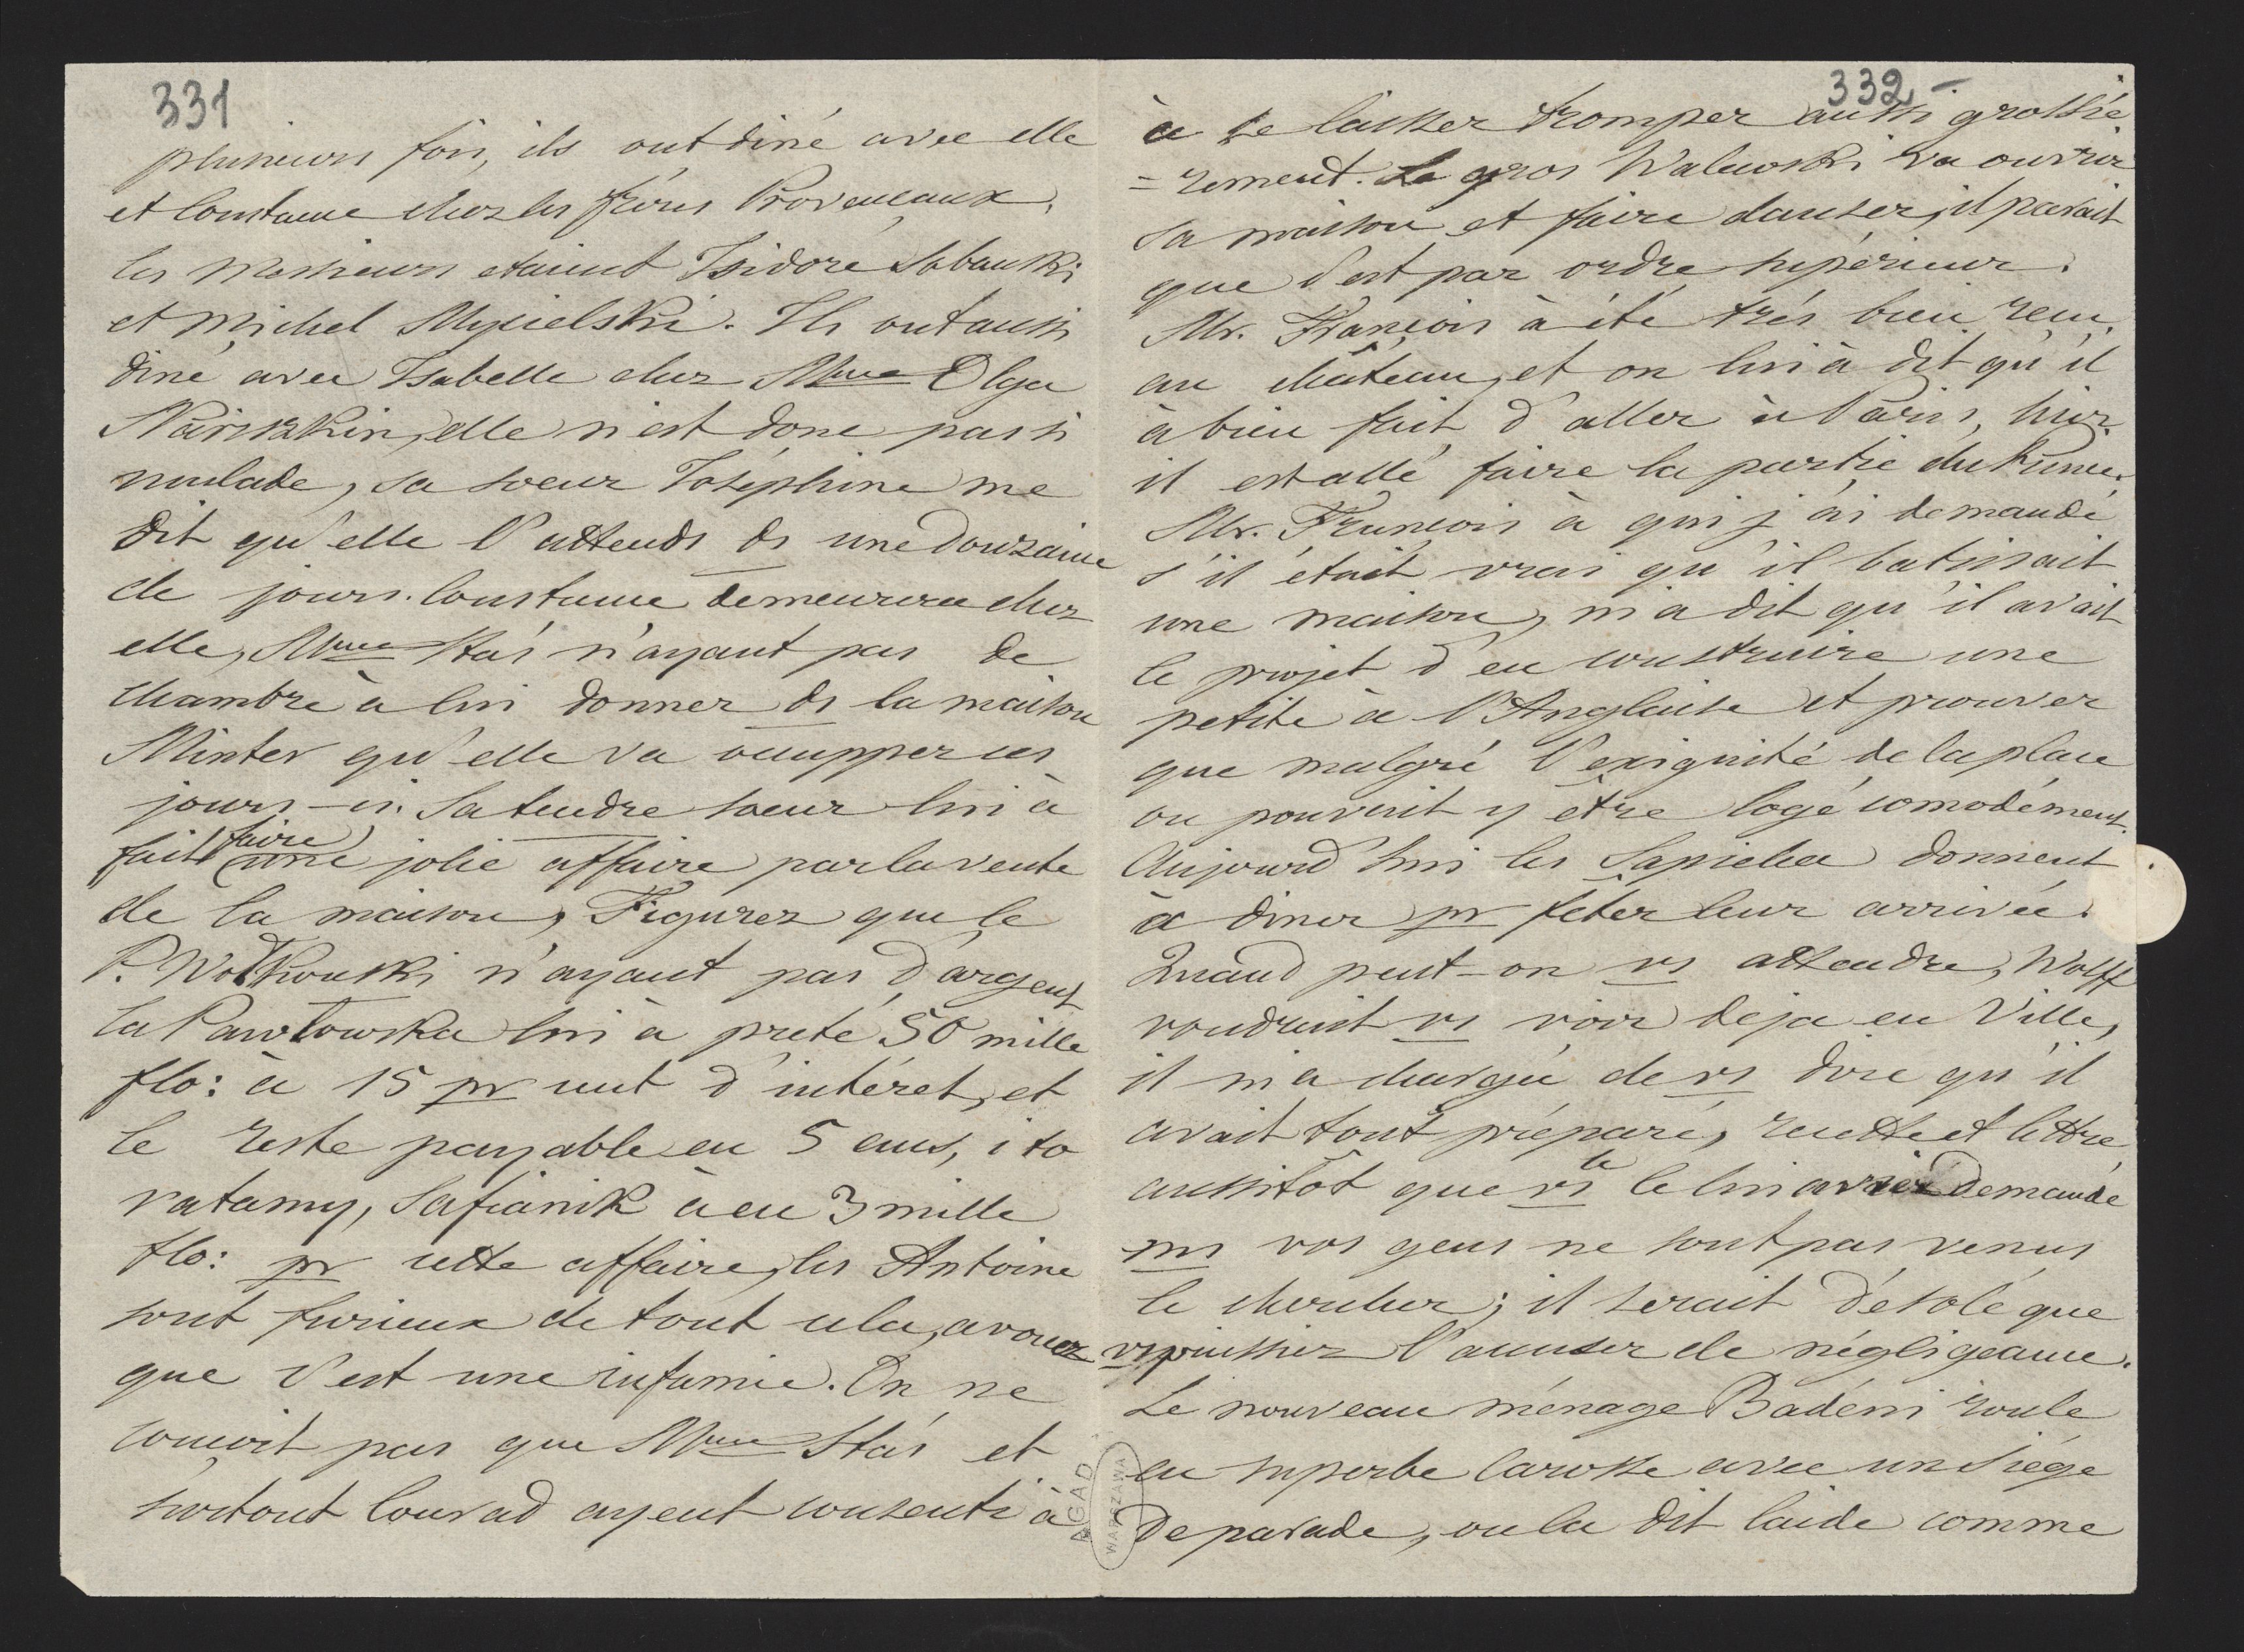 331
plusieurs fois, ils ont diné avec elle
et Constance chez les frères Provençaux,
les Messieurs etaient Isidore Sobanski
et Michel Mycielski. Ils ont aussi
diné avec Isabelle chez Mme Olga
Nariszkin, elle n'est donc pas si
malade, sa soeur Joséphine me
dit qu'elle l'attends ds une douzaine
de jours. Constance demeurera chez
elle, Mme Staś n'ayant pas de
chambre à lui donner ds la maison
Minter qu'elle va occupper ces
jours-ci. Sa tendre soeur lui à
fait faire une jolie affaire par la vente
de la maison, Figurez que le
P. Wodkowski n'ayant pas d'argent
la Pawłowska lui à preté 50 mille
flo: à 15 pr cent d'intéret, et
le reste payable en 5 ans, i to
ratamy, Safianik à eu 3 mille
flo: pr cette affaire, les Antoine
sont furieux de tout cela, avouez
que c'est une infamie. On ne
conçoit pas que Mme Staś et
surtout Conrad ayent consenti à
332 -
à se laisser tromper aussi grossiè
=rement. Le gros Walewski va ouvrir
sa maison et faire danser, il parait
que c'est par ordre supérieur.
Mr. François à été très bien reçu
au château, et on lui à dit qu'il
à bien fait d'aller à Paris, hier
il est allé faire la partie du Prince.
Mr. François à qui j'ai demandé
s'il était vrai qu'il batissait
une maison, m'a dit qu'il avait
le projet d'en construire une
petite à l'Anglaise et prouver
que malgré l'exiguité de la place
on pouvait y être logé comodément.
Aujourd'hui les Sapieha donnent
à diner pr fêter leur arrivée.
Quand peut-on vs attendre, Wolff
voudrait vs voir deja en Ville,
il m'a chargée de vs dire qu'il
avait tout préparé, recette et lettre
aussitôt que vs le lui aviez demandé
ms vos gens ne sont pas venus
le chercher; il serait désolé que
vs puissiez l'accuser de négligeance.
Le nouveau ménage Badéni roule
en superbe carosse avec un siége
de parade, on la dit laide comme
AGAD
WARSZAWA